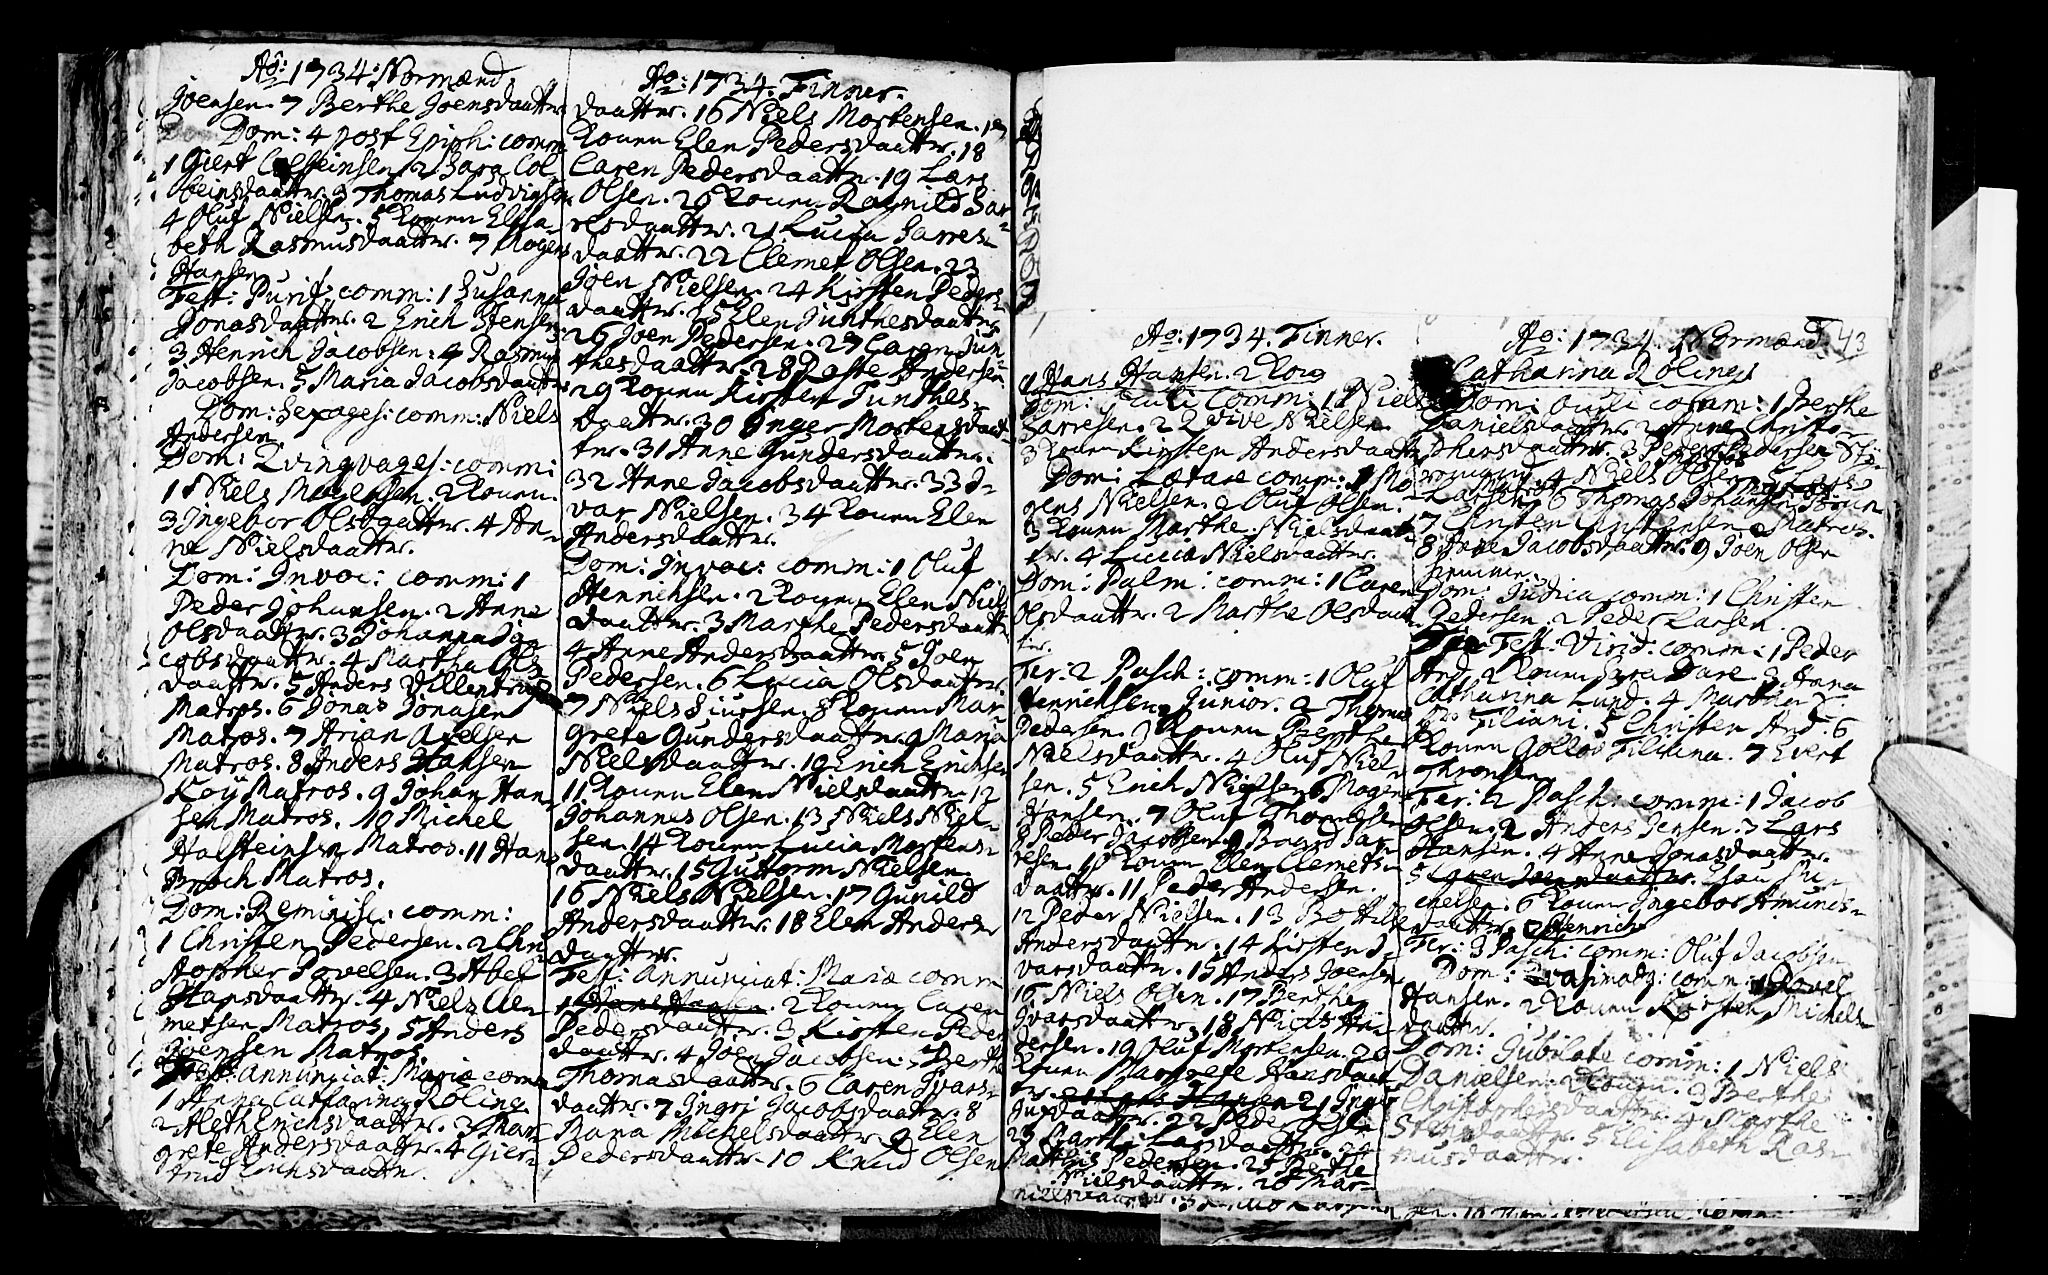 Ao: 1734: Normænd
Joensen. 7 Berthe Joensdaatter.
Dom: 4 post Epiph: comm
1 Giert 2 Sara Col
beinsdaatter. 3 Thomas Ludvigsen
4 Oluf Nielsen. 5 Konen Elisa-
beth Rasmusdaatter. 7 Mogens
Hansen
Fest: Purif: comm: 1 Susanna
Jonasdaatter. 2 Erich Stensen
3 Henrich Jacobsen: 4 Rasmus
Jacobsen. 5 Maria Jacobsdaatter
Dom: Sexages: comm: Niels
Andersen
Dom: Qvinqvages: comm:
1 Niels Mogensen. 2 Konen.
3 Ingebor Olsdaatter. 4 An-
ne Nielsdaatter.
Dom: Invoc: comm: 1
Peder Johansen. 2 Anne
Olsdaatter. 3 Johanna Ja-
cobsdaatter. 4 Martha Ols
daatter. 5 Anders
Matros. 6 Jonas Jonasen
Matros. 7 Arian Axelsen
Matros. 8 Anders Hansen
Køÿ Matros. 9 Johan Han-
sen Matros. 10 Michel
Halsteinsen Matros. 11 Hans
Broch Matros.
Dom: Reminisc: comm:
1 Christen Pedersen. 2 Chri
stopher Povelsen. 3 Abel
Hansdaatter. 4 Niels Cle-
metsen Matros, 5 Anders
Joensen Matros
Fest: Annunciat: Mariæ comm
1 Anna Catharina Roling
2 Aleth Erichsdaatter. 3 Mar-
grete Andersdaatter. 4 Gier-
trud Erichsdaatter.
Ao: 1734. Finner.
daatter. 16 Niels Mortensen. 17
Konen Elen Pedersdaatter. 18
Caren Pedersdaatter. 19 Lars
Olsen. 20 Konen Ragnild Sar-
resdaatter. 21 Lucia Sarres-
daatter. 22 Clemet Olsen. 23
Joen Nielsen. 24 Kirsten Peders
daatter. 25 Elen Junthesdaatter
26 Joen Pedersen. 27 Caren Jun-
thesdaatter. 28 Raste Andersen
29 Konen Kirsten Junthes-
daatter. 30 Inger Mortensdaat-
ter. 31 Anne Gundersdaatter.
32 Anne Jacobsdaatter. 33 I-
var Nielsen. 34 Konen Elen
Andersdaatter.
Dom: Invoc: comm: 1 Oluf
Henrichsen. 2 Konen Elen Niels
daatter. 3 Marthe Pedersdaatter
4 Anne Andersdaatter. 5 Joen
Pedersen. 6 Lucia Olsdaatter.
7 Niels Siursen. 8 Konen Mar-
grete Gundersdaatter. 9 Maria
Nielsdaatter. 10 Erich Erichsen
11 Konen Elen Nielsdaatter 12
Johannes Olsen. 13 Niels Niel-
sen. 14 Konen Lucia Mortens-
daatter. 15 Guttorm Nielsen.
16 Niels Nielsen. 17 Gunild
Andersdaatter. 18 Elen Anders-
daatter.
Fest: Annunciat: Mariæ comm
1 Hans Hansen. 2 Konen Caren
Pedersdaatter. 3 Kirsten Peders
daatter. 4 Joen Jacobsen. 5 Berthe
Thomasdaatter. 6 Caren Ivars-
daatter. 7 Ingri Jacobsdaatter. 8
Mana Michelsdaatter. 9 Elen
Pedersdaatter. 10 Knud Olsen
Ao: 1734. Finner.
1 Hans Hansen. 2 Kone
Dom: Oculi comm: 1 Niels
Sarresen. 2 Nielsen
3 Konen Kirsten Andersdaatter
Dom: Lætare comm: 1 Mo-
gens Nielsen. 2 Oluf Olsen.
3 Konen Marthe Nielsdaat-
ter. 4 Lucia Nielsdaatter.
Dom: Palm: comm: 1 Caren
Olsdaatter. 2 Marthe Olsdaat
ter.
Fer: 2 Pasch: comm: 1 Oluf
Henrichsen Junior. 2 Thomas
Pedersen. 3 Konen Berthe
Nielsdaatter. 4 Oluf Niel-
sen. 5 Erich Nielsen 6 Mogens
Hansen. 7 Oluf Thomesen
8 Peder Jacobsen. 9 Baard Sar-
resen. 10 Konen Elen Clemets-
daatter. 11 Peder Andersen.
12 Peder Nielsen. 13 Bothilde
Andersdaatter. 14 Kirsten I-
varsdaatter. 15 Anders Joensen
16 Niels Olsen. 17 Berthe
Ivarsdaatter. 18 Niels An-
dersen. 19 Oluf Mortensen. 20
Konen Margrete Hansdaat
ter. Hansen 21 Inger
daatter. 22 Peder
23 Marthe Larsdaatter. 24
Matthis Pedersen. 25 Berthe
Nielsdaatter. 26 Mar-
Ao: 1734. Normænd 43
Catharina Rolings
Dom: Oculi comm: 1 Berthe
Danielsdaatter 2 Anne Christo-
phersdaatter. 3 Peder Pedersen
4 Niels Olsen
Larsen 6 Thomas Johansen
7 Christen Christensen Matros.
8 Anne Jacobsdaatter. 9 Joen Olsen
Dom: Judica comm: 1 Christen
Pedersen. 2 Peder Larsen.
Fest: Virid: comm: 1 Peder
And. 2 Konen Sara Dare. 3 Anna
Catharina Lund. 4 Marthe
Filiani. 5 Christen And. 6
Konen Gollov Filitina. 7 Evert
Thronsen
Fer: 2 Pasch: comm: 1 Jacob
Olsen. 2 Anders Jensen. 3 Lars
Hansen. 4 Anne Jonasdaatter.
5 Caren Joensdaatter. Esau Mi-
chelsen. 6 Konen Ingebor Amunds-
daatter. 7 Henrich
Fer: 3 Pasch: comm: Oluf Jacobsen
Dom: Qvasimodg: comm: 1 Povel
Hansen. 2 Konen Kirsten Michels-
daatter.
Dom: Jubilate comm: 1 Niels
Danielsen. 2 Konen. 3 Berthe
Christophersdaatter. 4 Marthe
Stensdaatter. 5 Elisabeth Ras-
musdaatter.